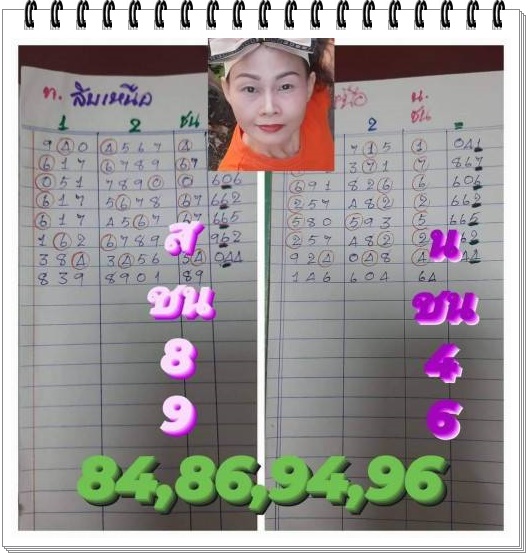 ท. สิบเหนือ
1 2 ชน
9 4 0 4 5 6 7 4
6 1 7 6 7 8 9 6 7
0 5 1 7 8 9 0 0 6 0 6
6 1 7 5 6 7 8 6 7 6 6 2
6 1 7 4 5 6 7 6 7 6 6 5
1 6 2 6 7 8 9 9 6 2
3 8 4 3 4 5 6 5 4 0 4 4
8 3 9 8 9 0 1 8 9
น.
2 ชน =
7 1 5 1 0 4 1
3 7 1 7 8 6 7
6 9 1 8 2 6 6 6 0 6
2 5 7 4 8 2 2 6 6 2
5 8 0 5 9 3 5 6 6 5
2 5 7 4 8 2 2 6 2
9 2 4 0 4 8 4
1 4 6 6 0 4 6 4
ส
ชน
8
9
น
ชน
4
6
84,86,94,96